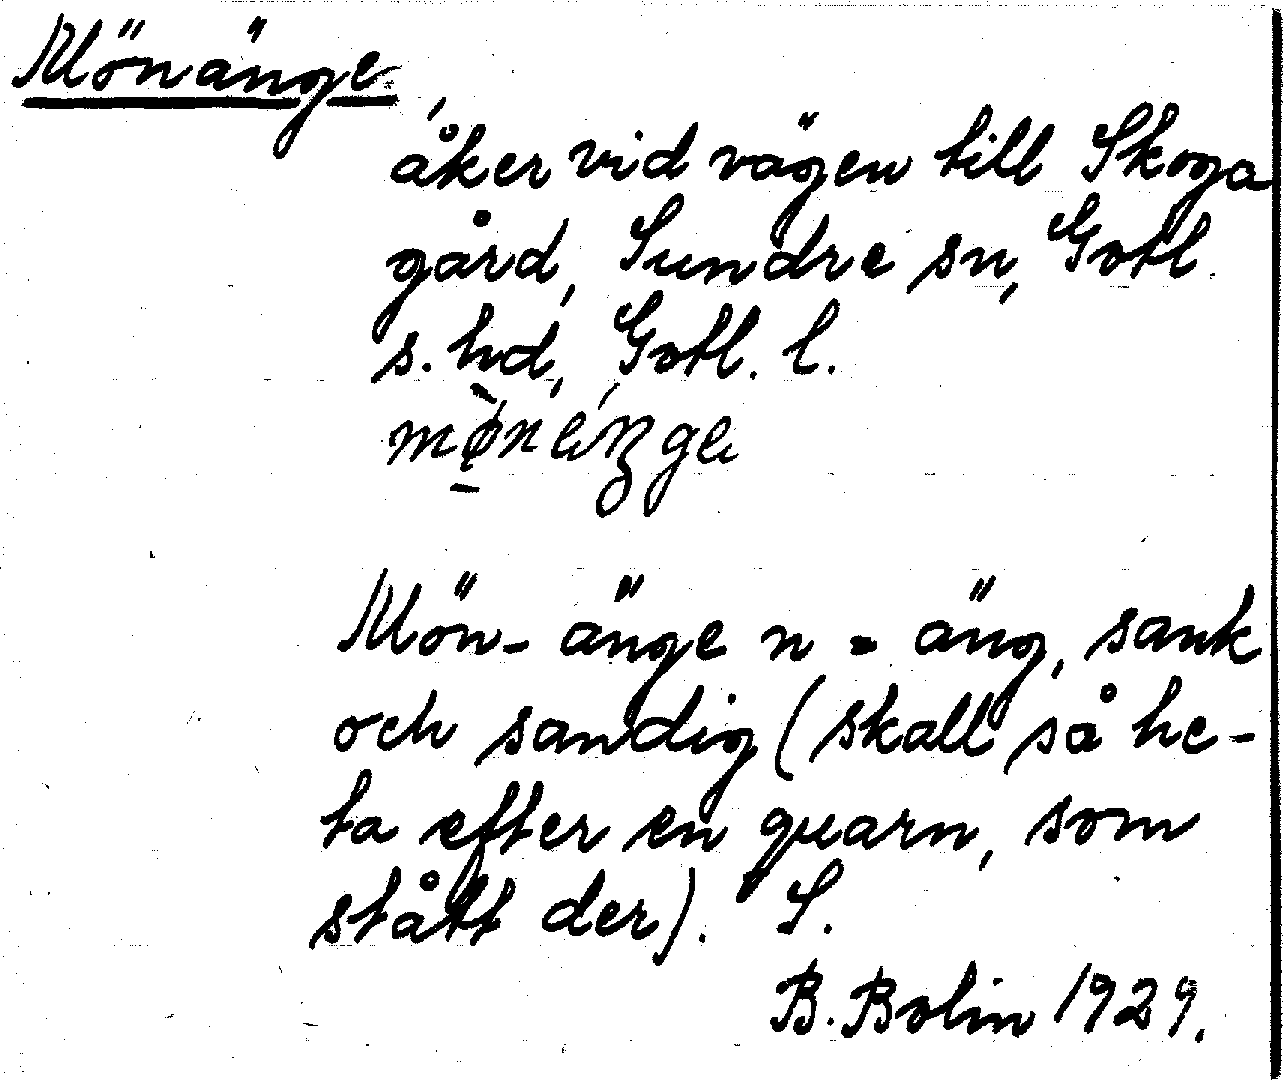 Mönänge
åker vid vägen till Skoga
gård, Sundre sn, Gotl.
s. hd, Gotl. l.
Mön- änge n = äng, sank
och sandig (skall så he-
ta efter en quarn, som
stått der). S.
B. Bolin 1929.